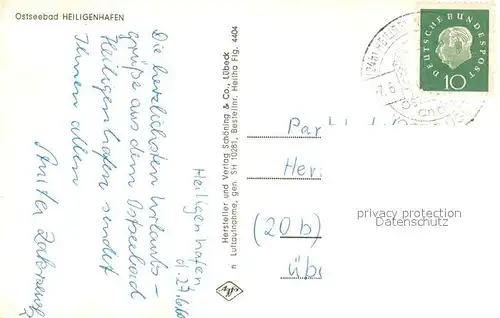 Ostseebad HEILIGENHAFEN
Die herzlichsten Urlaubs-
grüße aus dem Ostseebad
Heiligenhafen sendet
Ihnen allen
Anita
Heiligenhafen
Hersteller und Verlag Schöning & Co., Lübeck
Luftaufnahme, gen. SH 10281, Bestellnr. Heilha Flg. 4404
DEUTSCHE BUNDESPOST
10
Her
(20b)
üb
privacy protection
Datenschutz